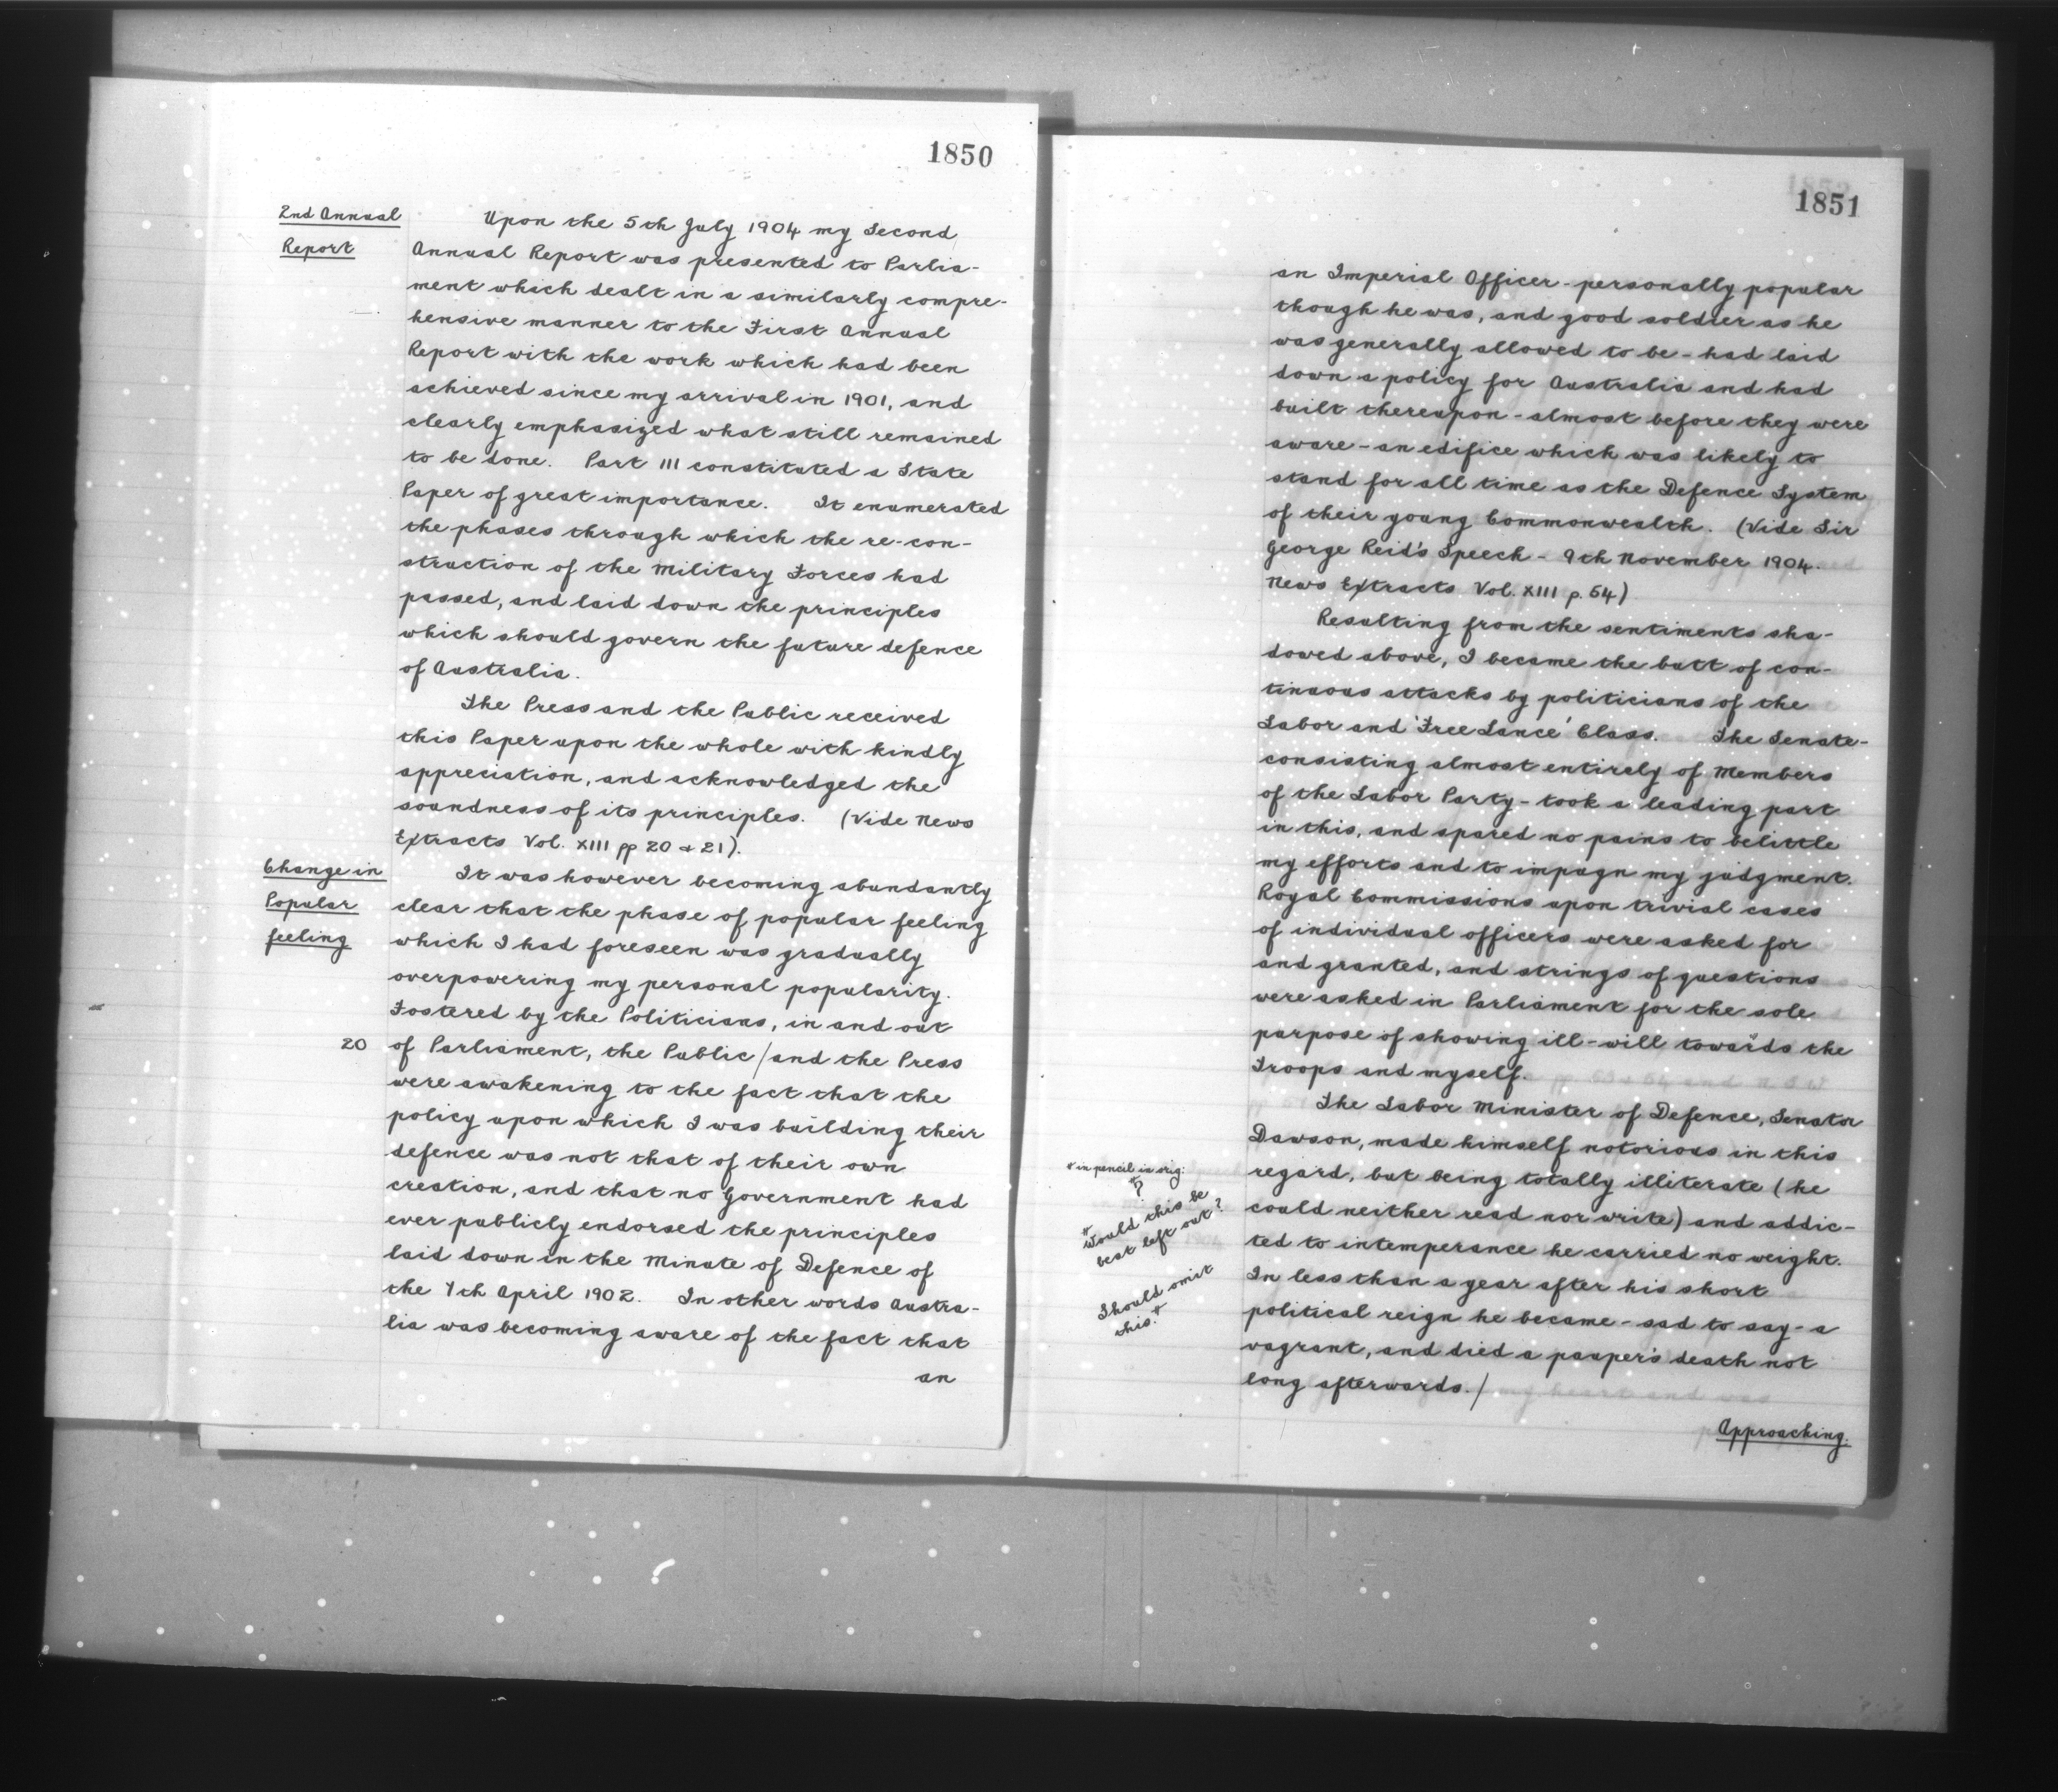 1850
2nd Annual
Report
Upon the 5th July 1904 my Second
Annual Report was presented to Parlia-
ment which dealt in a similarly compre-
hensive manner to the First Annual
Report with the work which had been
achieved since my arrival in 1901, and
clearly emphasized what still remained
to be done. Part III constituted a State
Paper of great importance. It enumerated
the phases through which the re-con-
struction of the Military Forces had
passed, and laid down the principles
which should govern the future defence
of Australia.
The Press and the Public received
this Paper upon the whole with kindly
appreciation, and acknowledged the
soundness of its principles. (Vide News
Extracts Vol. XIII pp 20 & 21).
Change in
Popular
feeling
It was however becoming abundantly
clear that the phase of popular feeling
which I had foreseen was gradually
overpowering my personal popularity.
Fostered by the Politicians, in and out
20 of Parliament, the Public/and the Press
were awakening to the fact that the
policy upon which I was building their
defence was not that of their own
creation, and that no Government had
ever publicly endorsed the principles
laid down in the Minute of Defence of
the 7th April 1902. In other words Austra-
lia was becoming aware of the fact that
an
1851
an Imperial Officer - personally popular
though he was, and good soldier as he
was generally allowed to be - had laid
down a policy for Australia and had
built thereupon - almost before they were
aware - an edifice which was likely to
stand for all time as the Defence System
of their young Commonwealth. (Vide Sir
George Reid's Speech - 9th November 1904.
News Extracts Vol. XIII p. 54)
Resulting from the sentiments sha-
dowed above, I became the butt of con-
tinuous attacks by politicians of the
Labor and 'Free Lance' Class. The Senate -
consisting almost entirely of Members
of the Labor Party - took a leading part
in this, and spared no pains to belittle
my efforts and to impugn my judgment.
Royal Commissions upon trivial cases
of individual officers were asked for
and granted, and strings of questions
were asked in Parliament for the sole
purpose of showing ill-will towards the
Troops and myself.
The Labor Minister of Defence, Senator
Dawson, made himself notorious in this
regard, but being totally illiterate (he
could neither read nor write) and addic-
ted to intemperance he carried no weight.
In less than a year after his short
political reign he became - sad to say - a
vagrant, and died a pauper's death not
long afterwards./
* in pencil in orig:
?
* Would this be
best left out?
Should omit
this.*
Approaching.